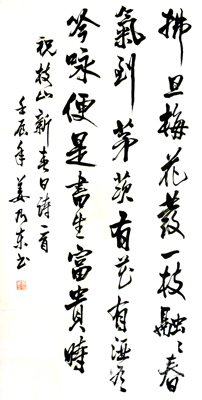 拂旦梅花發一枝融〻春
氣到茅茨有花有酒有
吟咏便是書生富貴時
祝枝山新春日詩一首
壬辰年姜乃東书